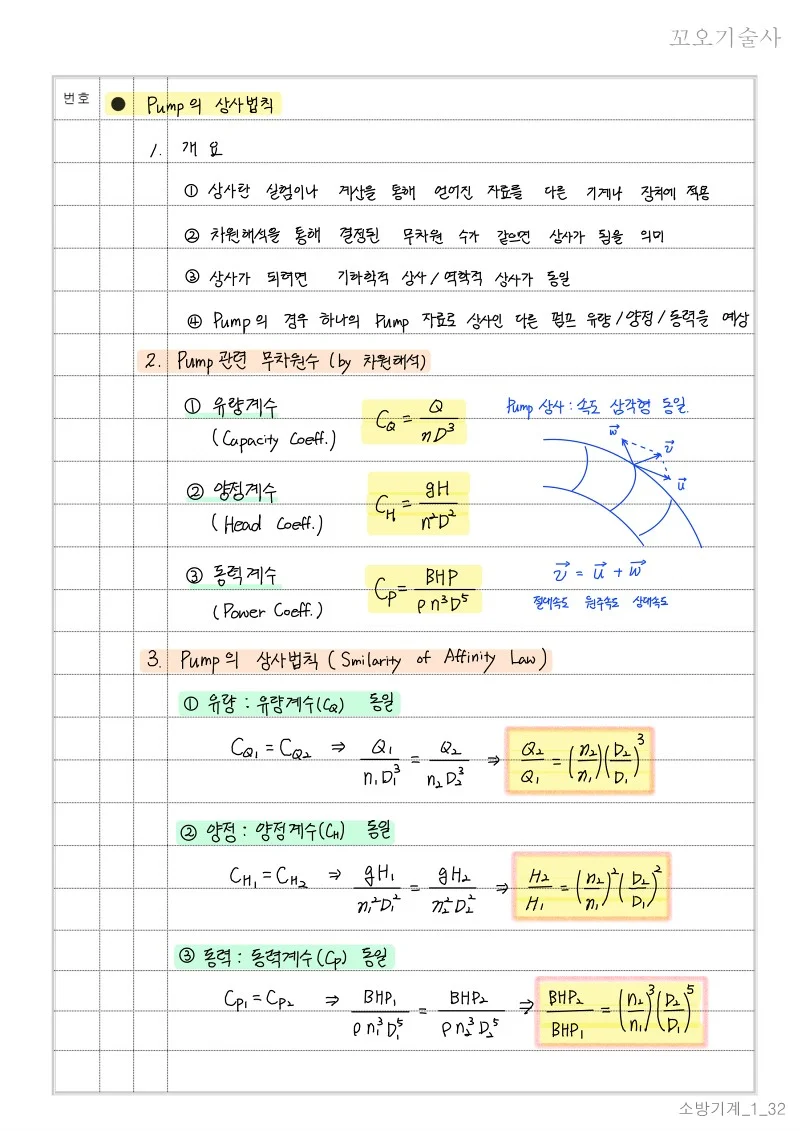 꼬오기술사
번호
● Pump의 상사법칙
1. 개요
① 상사란 실험이나 계산을 통해 얻어진 자료를 다른 기계나 장치에 적용
② 차원해석을 통해 결정된 무차원 수가 같으면 상사가 됨을 의미
③ 상사가 되려면 기하학적 상사/역학적 상사가 동일
④ Pump의 경우 하나의 Pump 자료로 상사인 다른 펌프 유량/양정/동력을 예상
2. Pump 관련 무차원수 (by 차원해석)
① 유량계수 C_Q = Q / nD³
(Capacity Coeff.)
Pump 상사 : 속도 삼각형 동일.
w⃗ v⃗ u⃗
② 양정계수 C_H = gH / n²D²
(Head Coeff.)
③ 동력계수 C_P = BHP / ρn³D⁵
(Power Coeff.)
v⃗ = u⃗ + w⃗
절대속도 원주속도 상대속도
3. Pump의 상사법칙 (Smilarity of Affinity Law)
① 유량 : 유량계수(C_Q) 동일
C_Q₁ = C_Q₂ ⇒ Q₁ / n₁D₁³ = Q₂ / n₂D₂³ ⇒ Q₂/Q₁ = (n₂/n₁)(D₂/D₁)³
② 양정 : 양정계수(C_H) 동일
C_H₁ = C_H₂ ⇒ gH₁ / n₁²D₁² = gH₂ / n₂²D₂² ⇒ H₂/H₁ = (n₂/n₁)²(D₂/D₁)²
③ 동력 : 동력계수(C_P) 동일
C_P₁ = C_P₂ ⇒ BHP₁ / ρn₁³D₁⁵ = BHP₂ / ρn₂³D₂⁵ ⇒ BHP₂/BHP₁ = (n₂/n₁)³(D₂/D₁)⁵
소방기계_1_32